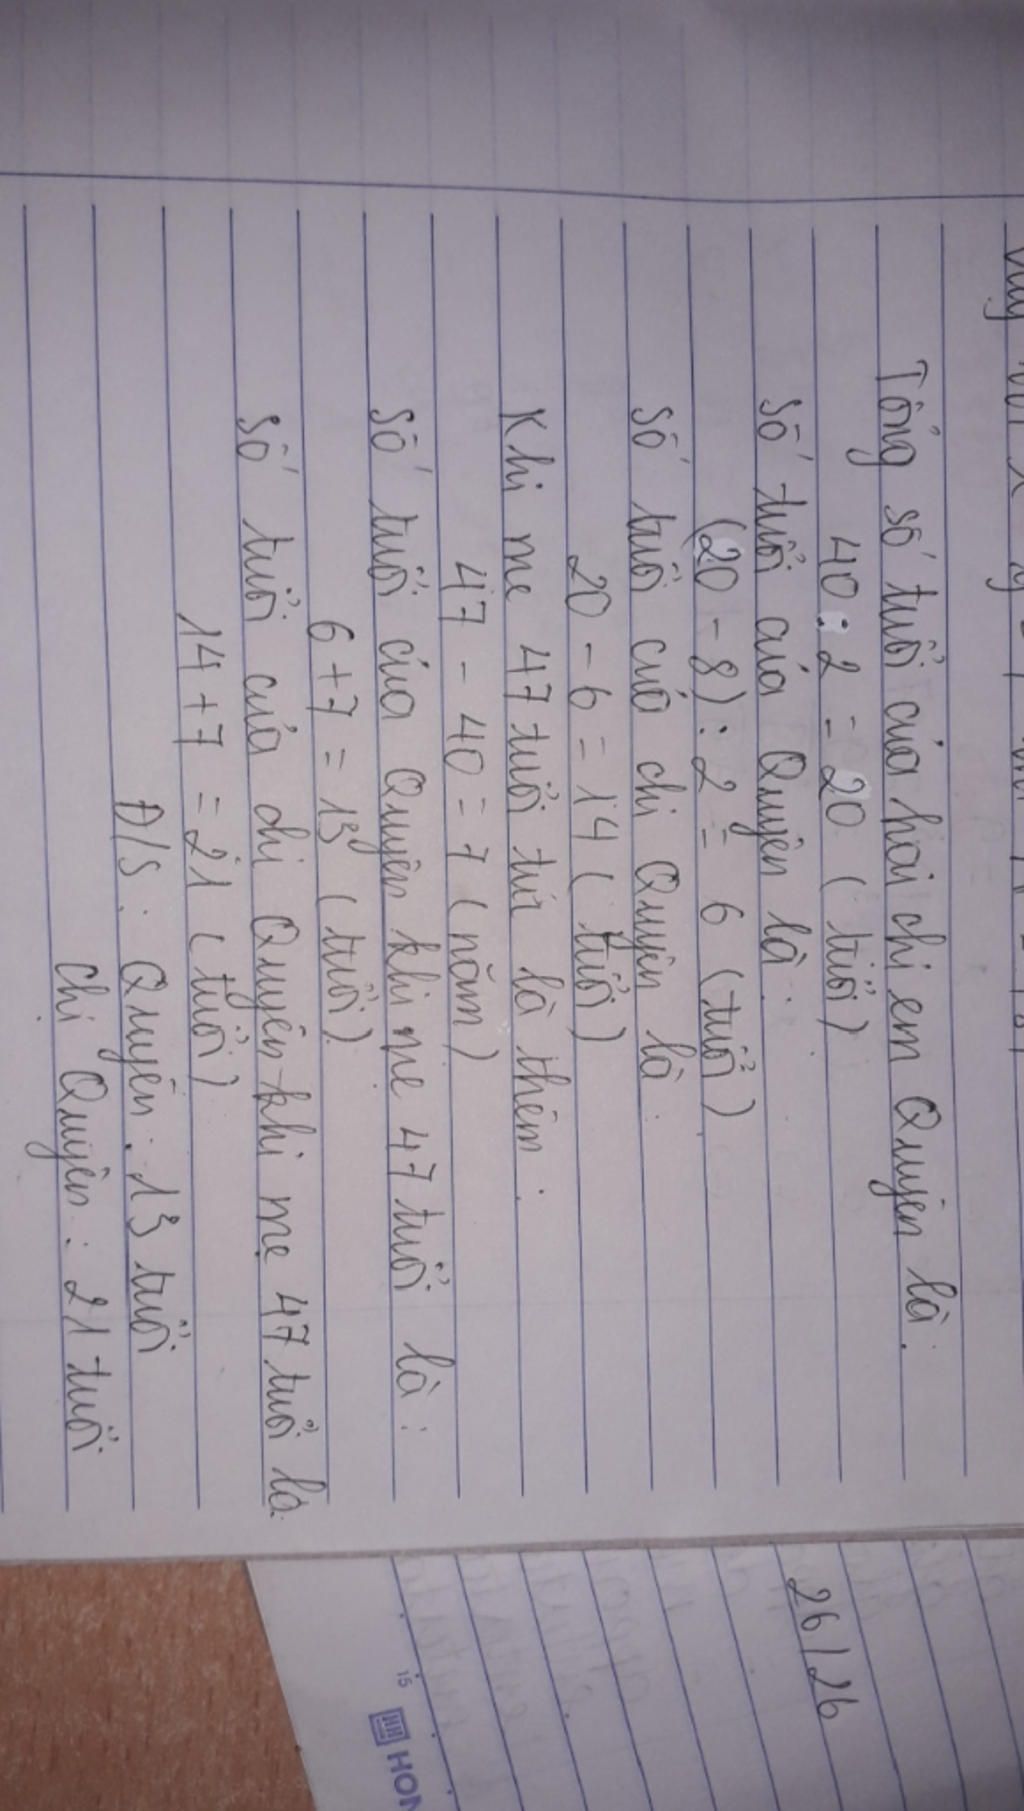 Tổng số tuổi của hai chị em Quyên là:
40 : 2 = 20 (tuổi)
Số tuổi của Quyên là:
(20 - 8) : 2 = 6 (tuổi)
Số tuổi của chị Quyên là:
20 - 6 = 14 (tuổi)
Khi mẹ 47 tuổi tức là thêm:
47 - 40 = 7 (năm)
Số tuổi của Quyên khi mẹ 47 tuổi là:
6 + 7 = 13 (tuổi)
Số tuổi của chị Quyên khi mẹ 47 tuổi là
14 + 7 = 21 (tuổi)
Đ/S: Quyên: 13 tuổi
Chị Quyên: 21 tuổi
26/26
15
HON